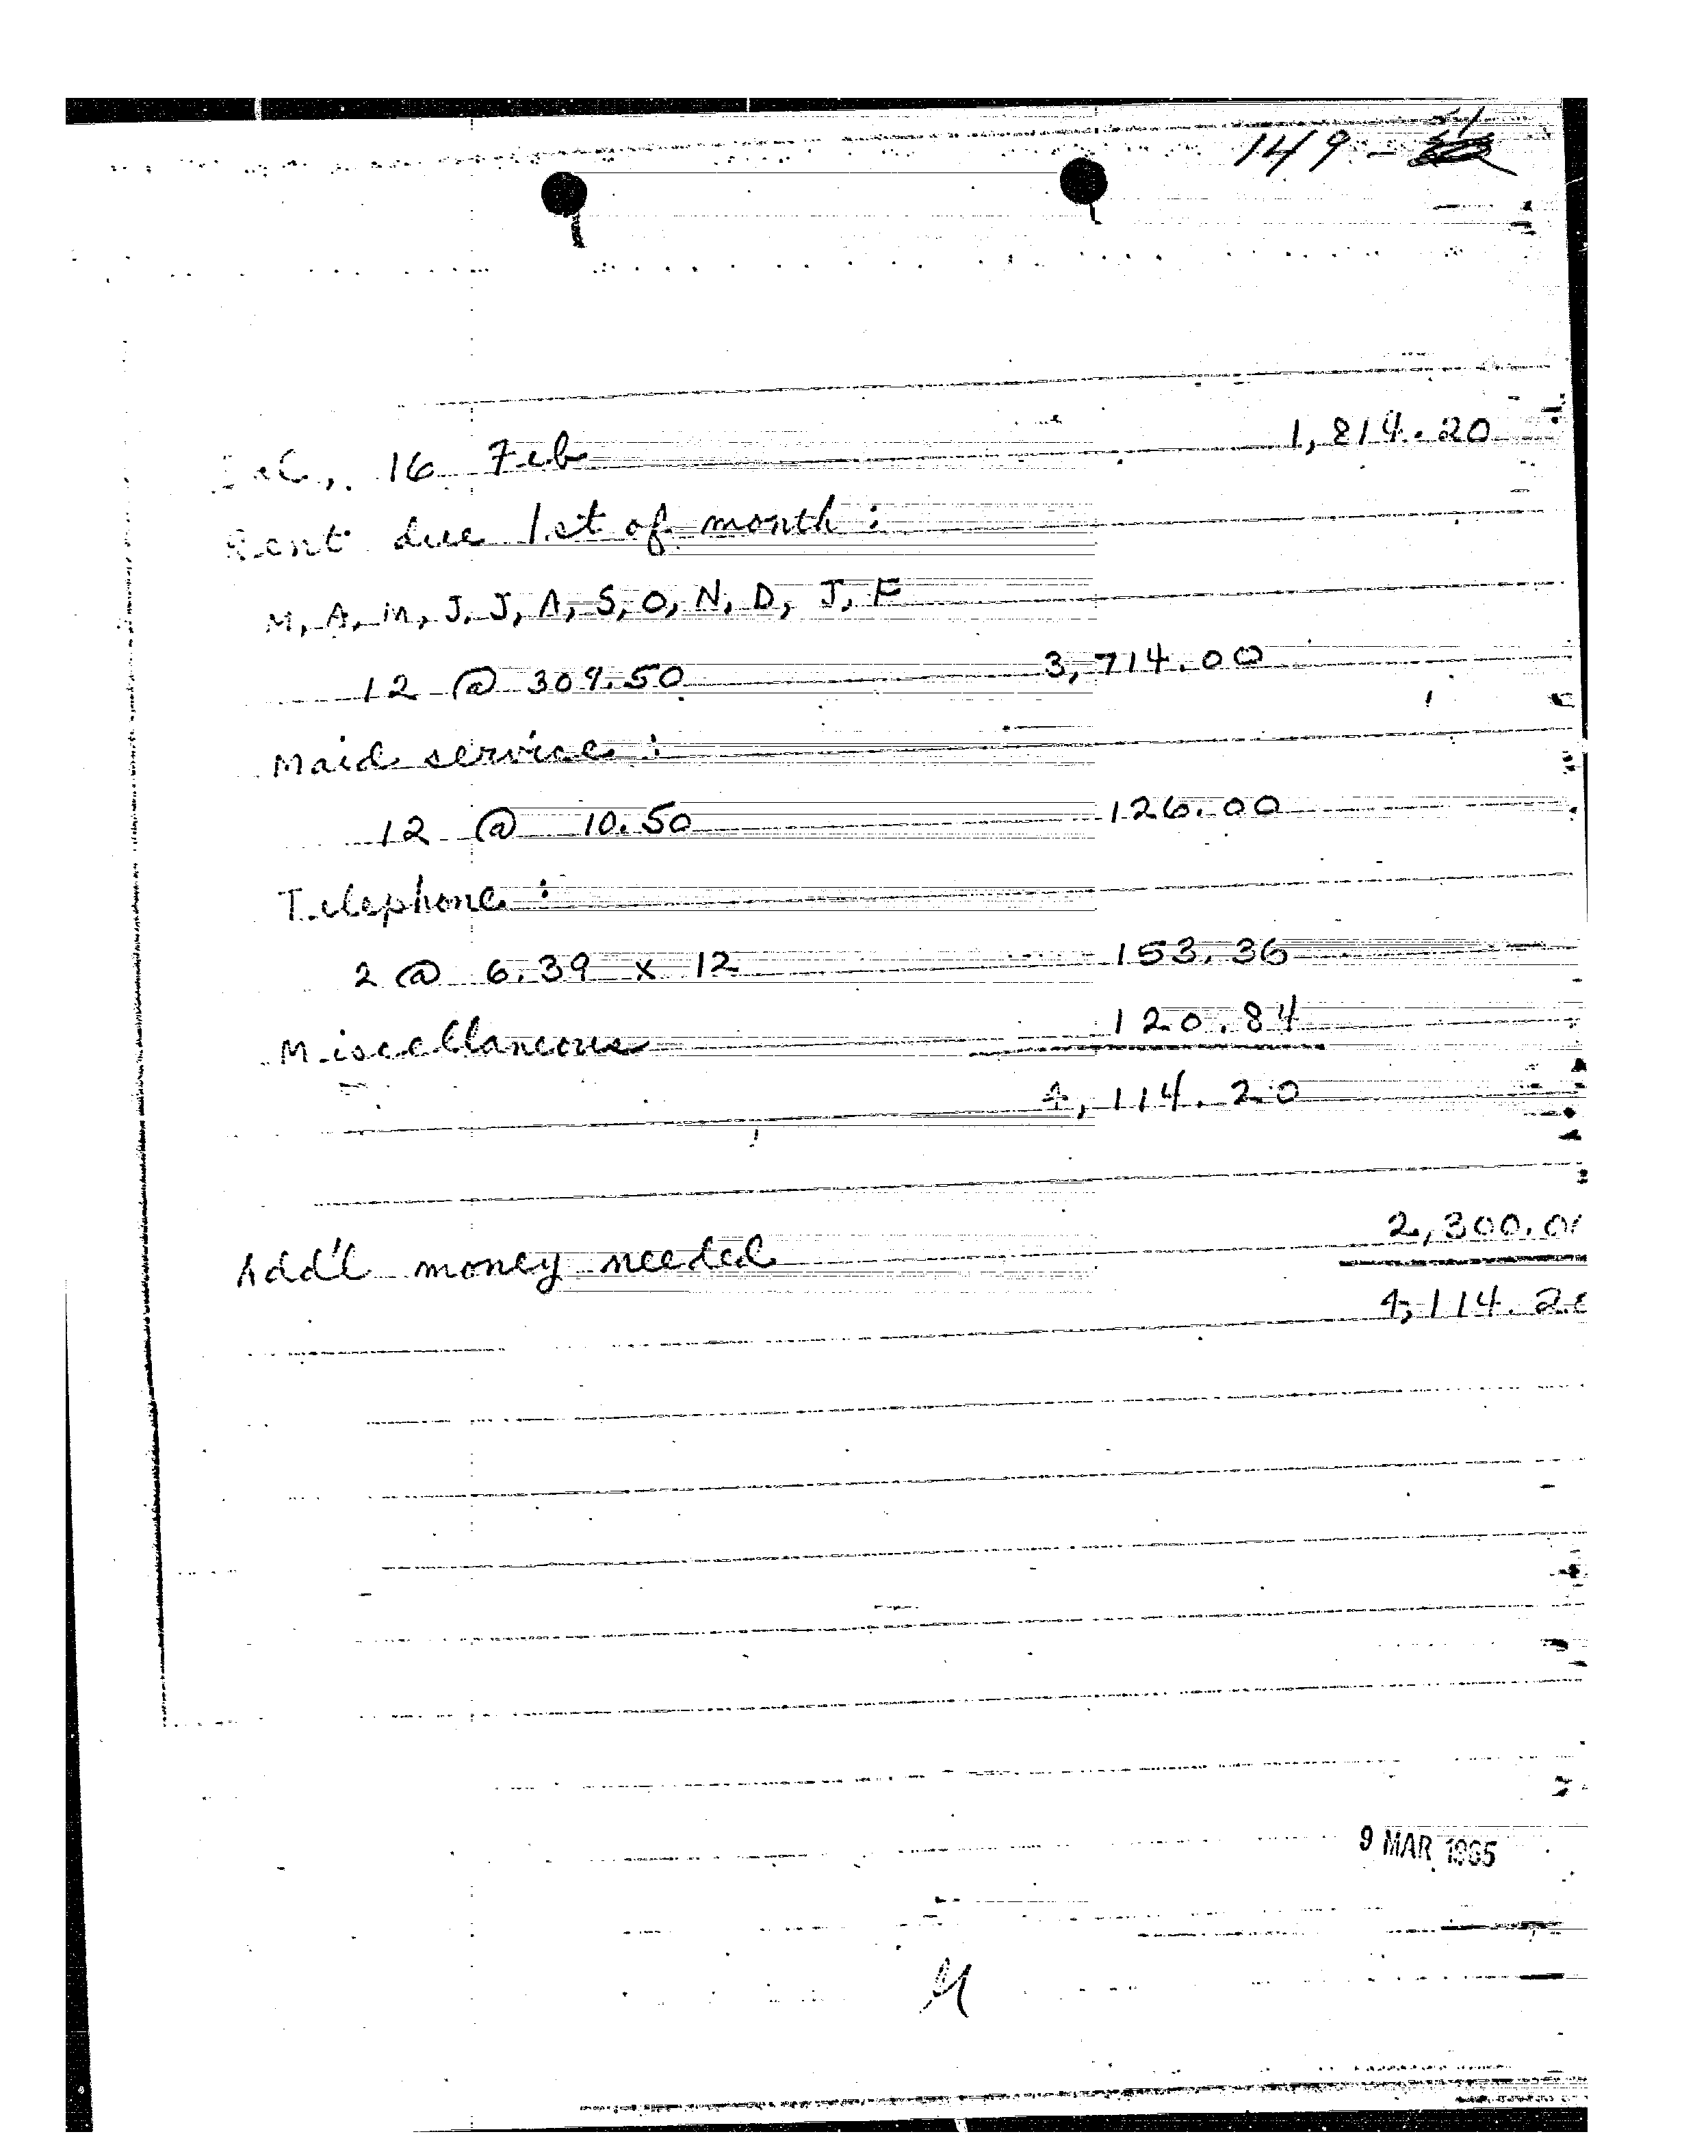 149-51
16 Feb 1,814.20
Rent due 1st of month :
M, A, M, J, J, A, S, O, N, D, J, F
12 @ 309.50 3,714.00
Maid service :
12 @ 10.50 126.00
Telephone :
2 @ 6.39 x 12 153.36
Miscellaneous 120.84
4,114.20
Add'l money needed 2,300.0
4,114.20
9 MAR 1965